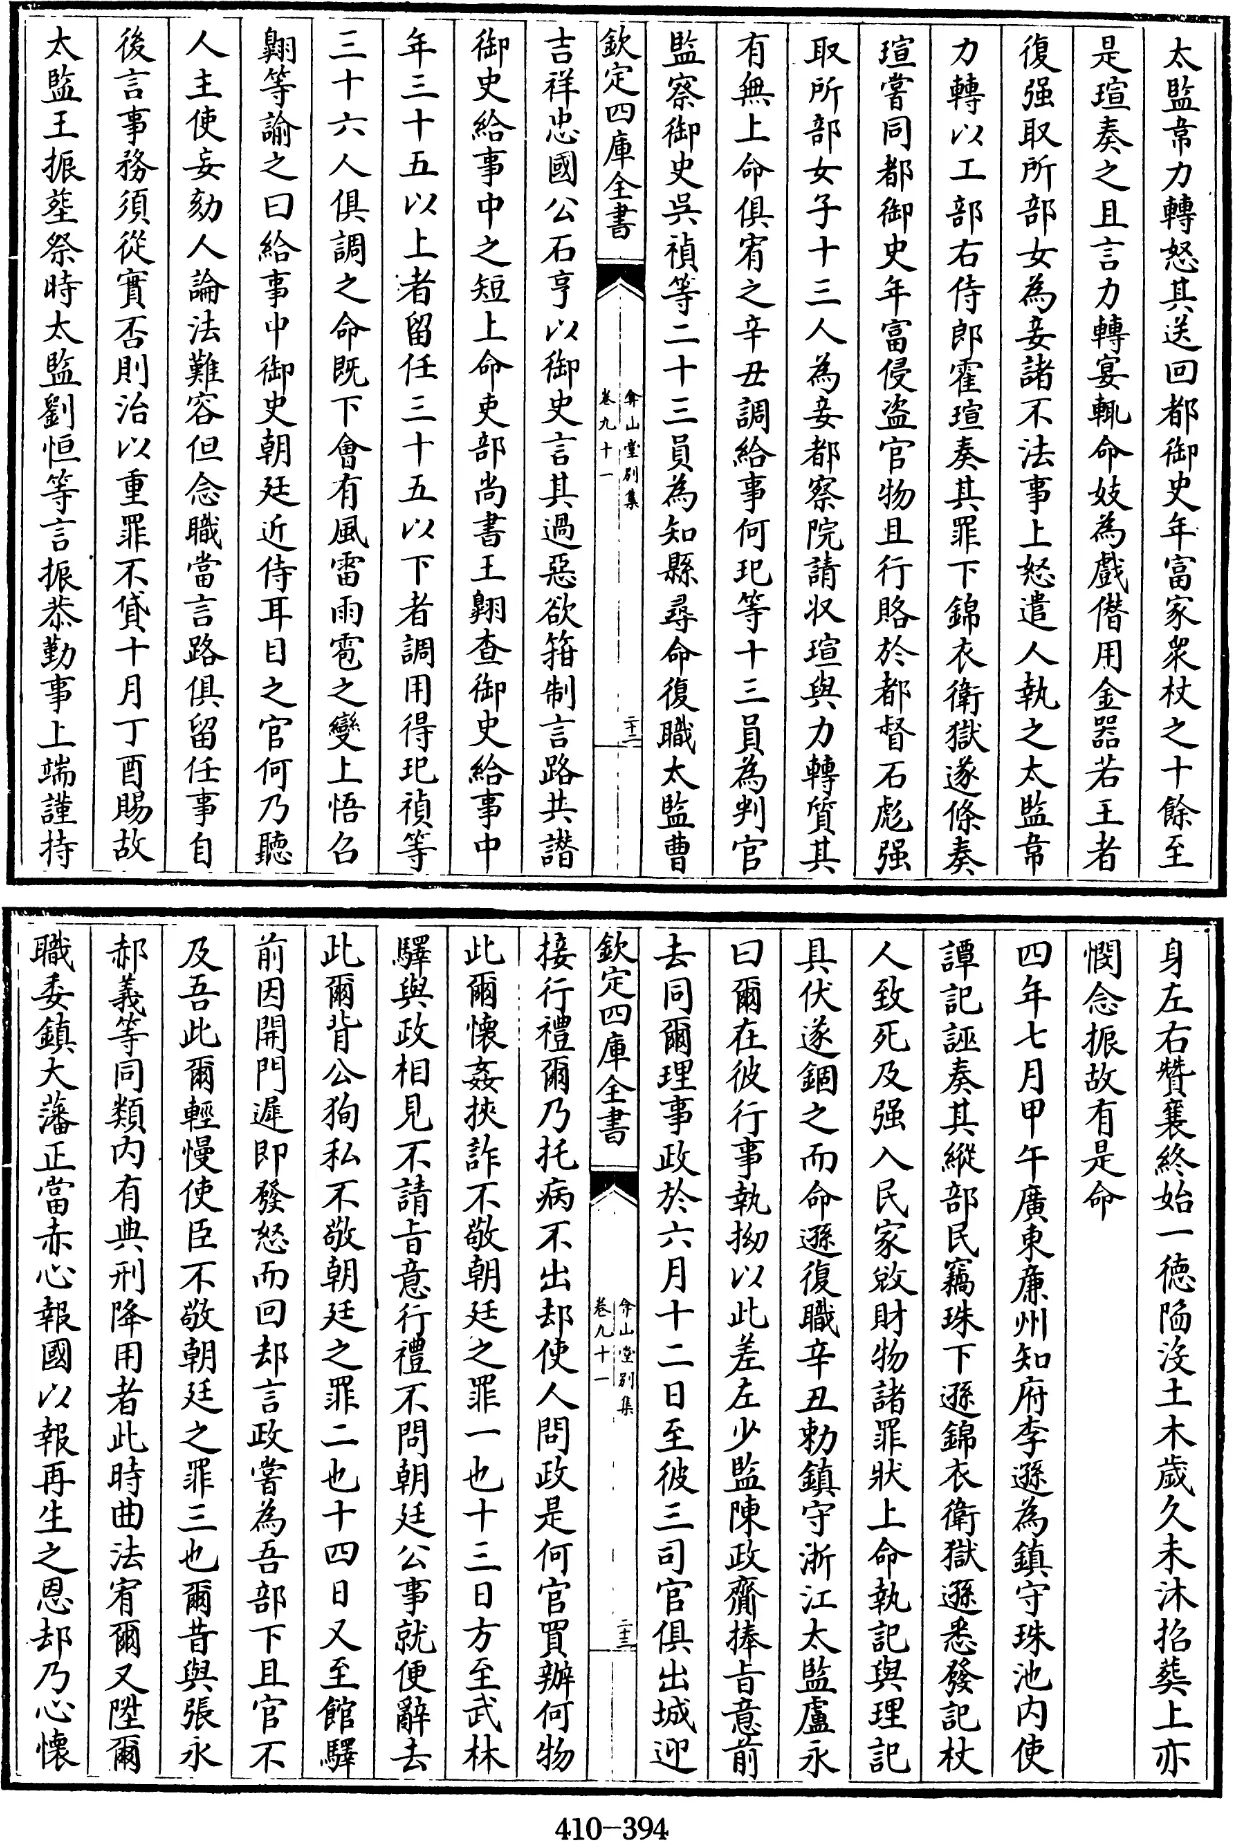 太監韋力轉怒其送回都御史年富家衆杖之十餘至
是瑄奏之且言力轉宴輒命妓為戲僭用金器若王者
復强取所部女為妾諸不法事上怒遣人執之太監韋
力轉以工部右侍郎霍瑄奏其罪下錦衣衛獄遂條奏
瑄嘗同都御史年富侵盗官物且行賂於都督石彪强
取所部女子十三人為妾都察院請収瑄與力轉質其
有無上命俱宥之辛丑調給事何玘等十三員為判官
監察御史吳禎等二十三員為知縣尋命復職太監曹
欽定四庫全書
弇山堂別集
卷九十一
二十二
吉祥忠國公石亨以御史言其過惡欲箝制言路共譖
御史給事中之短上命吏部尚書王翺查御史給事中
年三十五以上者留任三十五以下者調用得玘禎等
三十六人俱調之命既下會有風雷雨雹之變上悟召
翺等諭之曰給事中御史朝廷近侍耳目之官何乃聽
人主使妄劾人論法難容但念職當言路俱留任事自
後言事務須從實否則治以重罪不貸十月丁酉賜故
太監王振塟祭時太監劉恒等言振恭勤事上端謹持
身左右贊襄終始一徳陥没土木歲久未沐招葬上亦
憫念振故有是命
四年七月甲午廣東廉州知府李遜為鎮守珠池内使
譚記誣奏其縱部民竊珠下遜錦衣衛獄遜悉發記杖
人致死及强入民家啟財物諸罪狀上命執記與理記
具伏遂錮之而命遜復職辛丑勅鎮守浙江太監盧永
曰爾在彼行事執拗以此差左少監陳政齎捧旨意前
去同爾理事政於六月十二日至彼三司官俱出城迎
欽定四庫全書
弇山堂別集
卷九十一
二十三
接行禮爾乃托病不出却使人問政是何官買辦何物
此爾懷姦挾詐不敬朝廷之罪一也十三日方至武林
驛與政相見不請旨意行禮不問朝廷公事就便辭去
此爾背公狥私不敬朝廷之罪二也十四日又至館驛
前因開門遲即發怒而回却言政嘗為吾部下且官不
及吾此爾輕慢使臣不敬朝廷之罪三也爾昔與張永
郝義等同類内有典刑降用者此時曲法宥爾又陞爾
職委鎮大藩正當赤心報國以報再生之恩却乃心懷
410-394